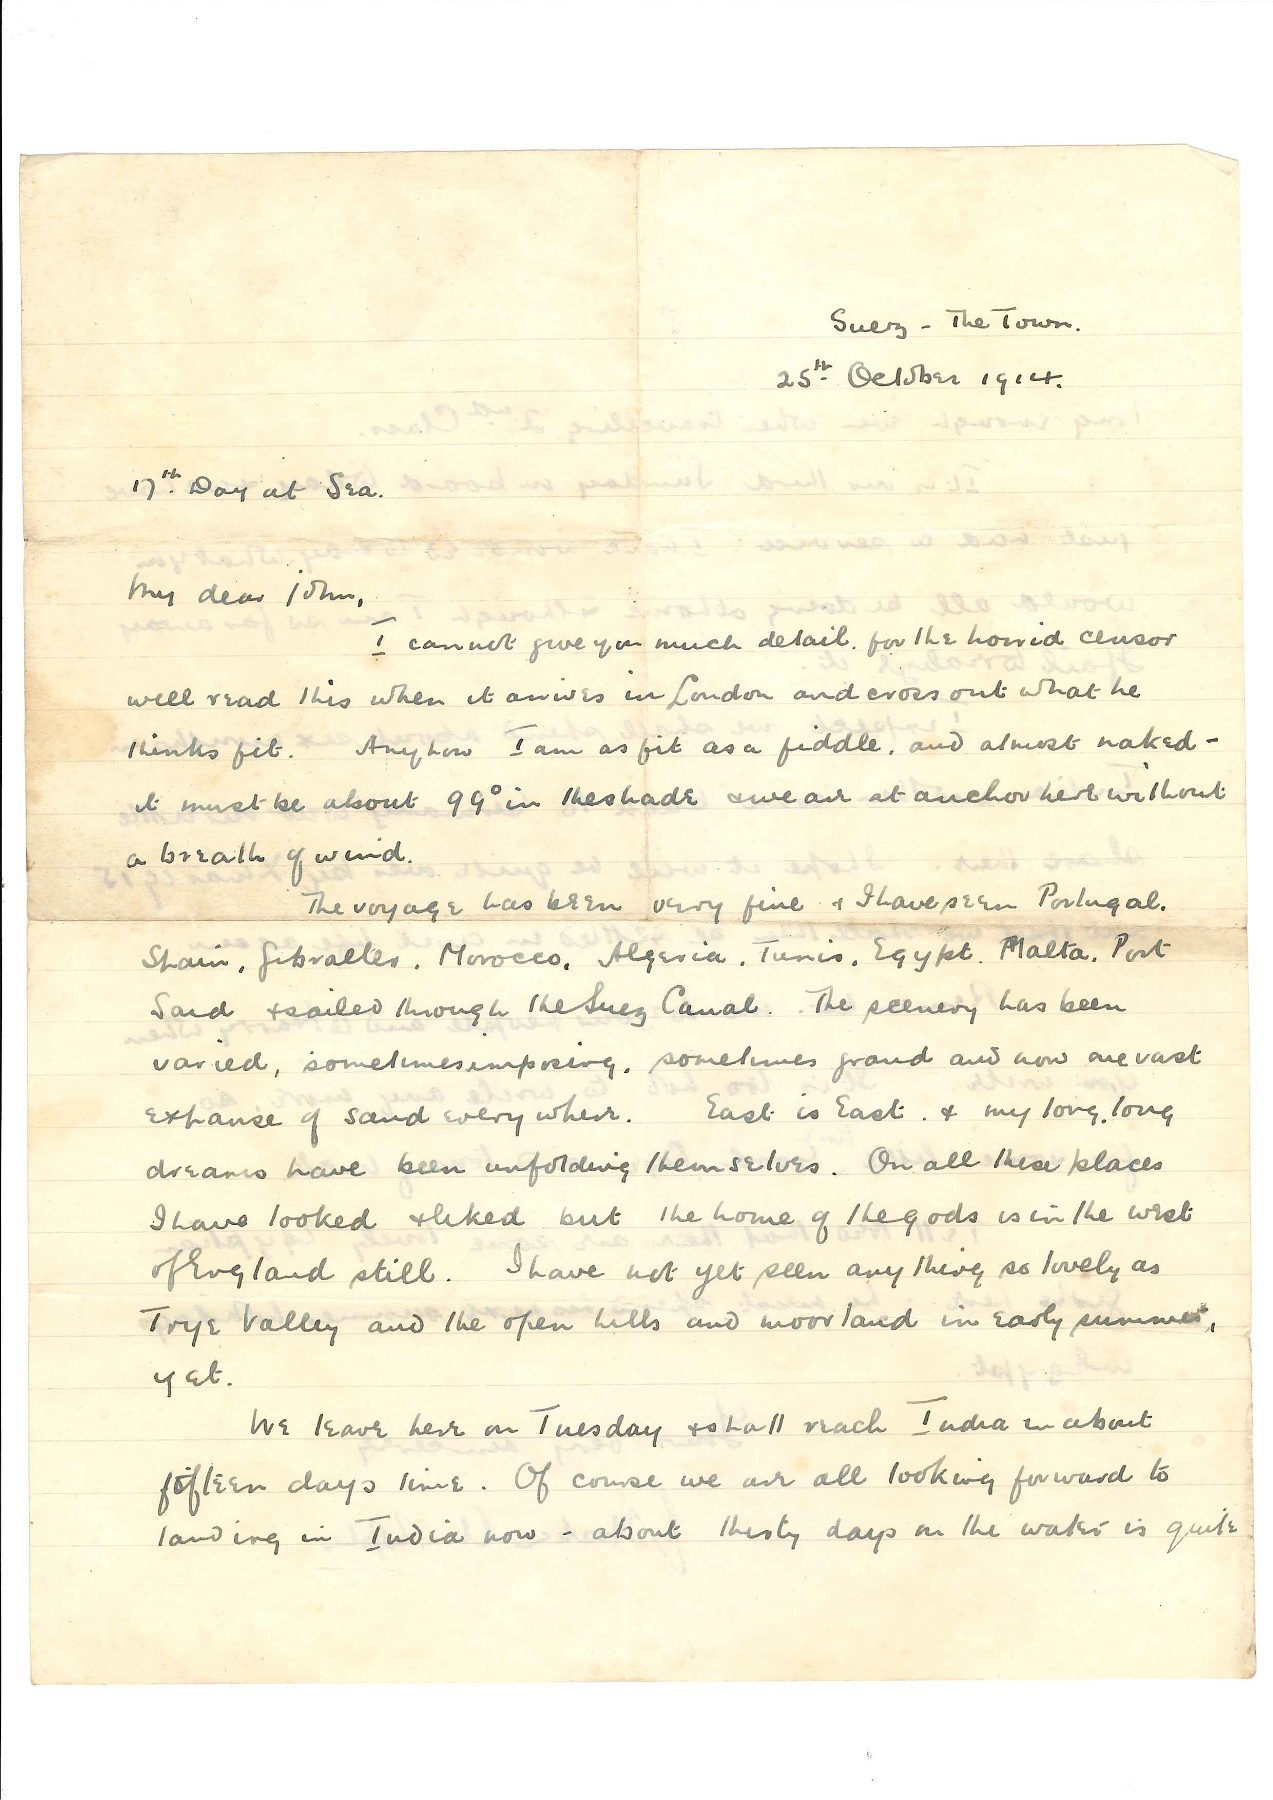 Suez - The Town.
25th October 1914.
17th Day at Sea.
My dear John,
I cannot give you much detail. for the horrid censor
will read this when it arrives in London and cross out what he
thinks fit. Anyhow I am as fit as a fiddle, and almost naked -
it must be about 99° in the shade & we are at anchor here without
a breath of wind.
The voyage has been very fine & I have seen Portugal,
Spain, Gibralter, Morocco, Algeria, Tunis, Egypt, Malta, Port
Said & sailed through the Suez Canal. The scenery has been
varied, sometimes imposing, sometimes grand and now one vast
expanse of sand everywhere. East is East. & my long, long
dreams have been unfolding themselves. On all these places
I have looked & liked but the home of the gods is in the west
of England still. I have not yet seen anything so lovely as
Valley and the open hills and moorland in early summer,
yet.
We leave here on Tuesday & shall reach India in about
fifteen days time. Of course we are all looking forward to
landing in India now - about thirty days on the water is quite